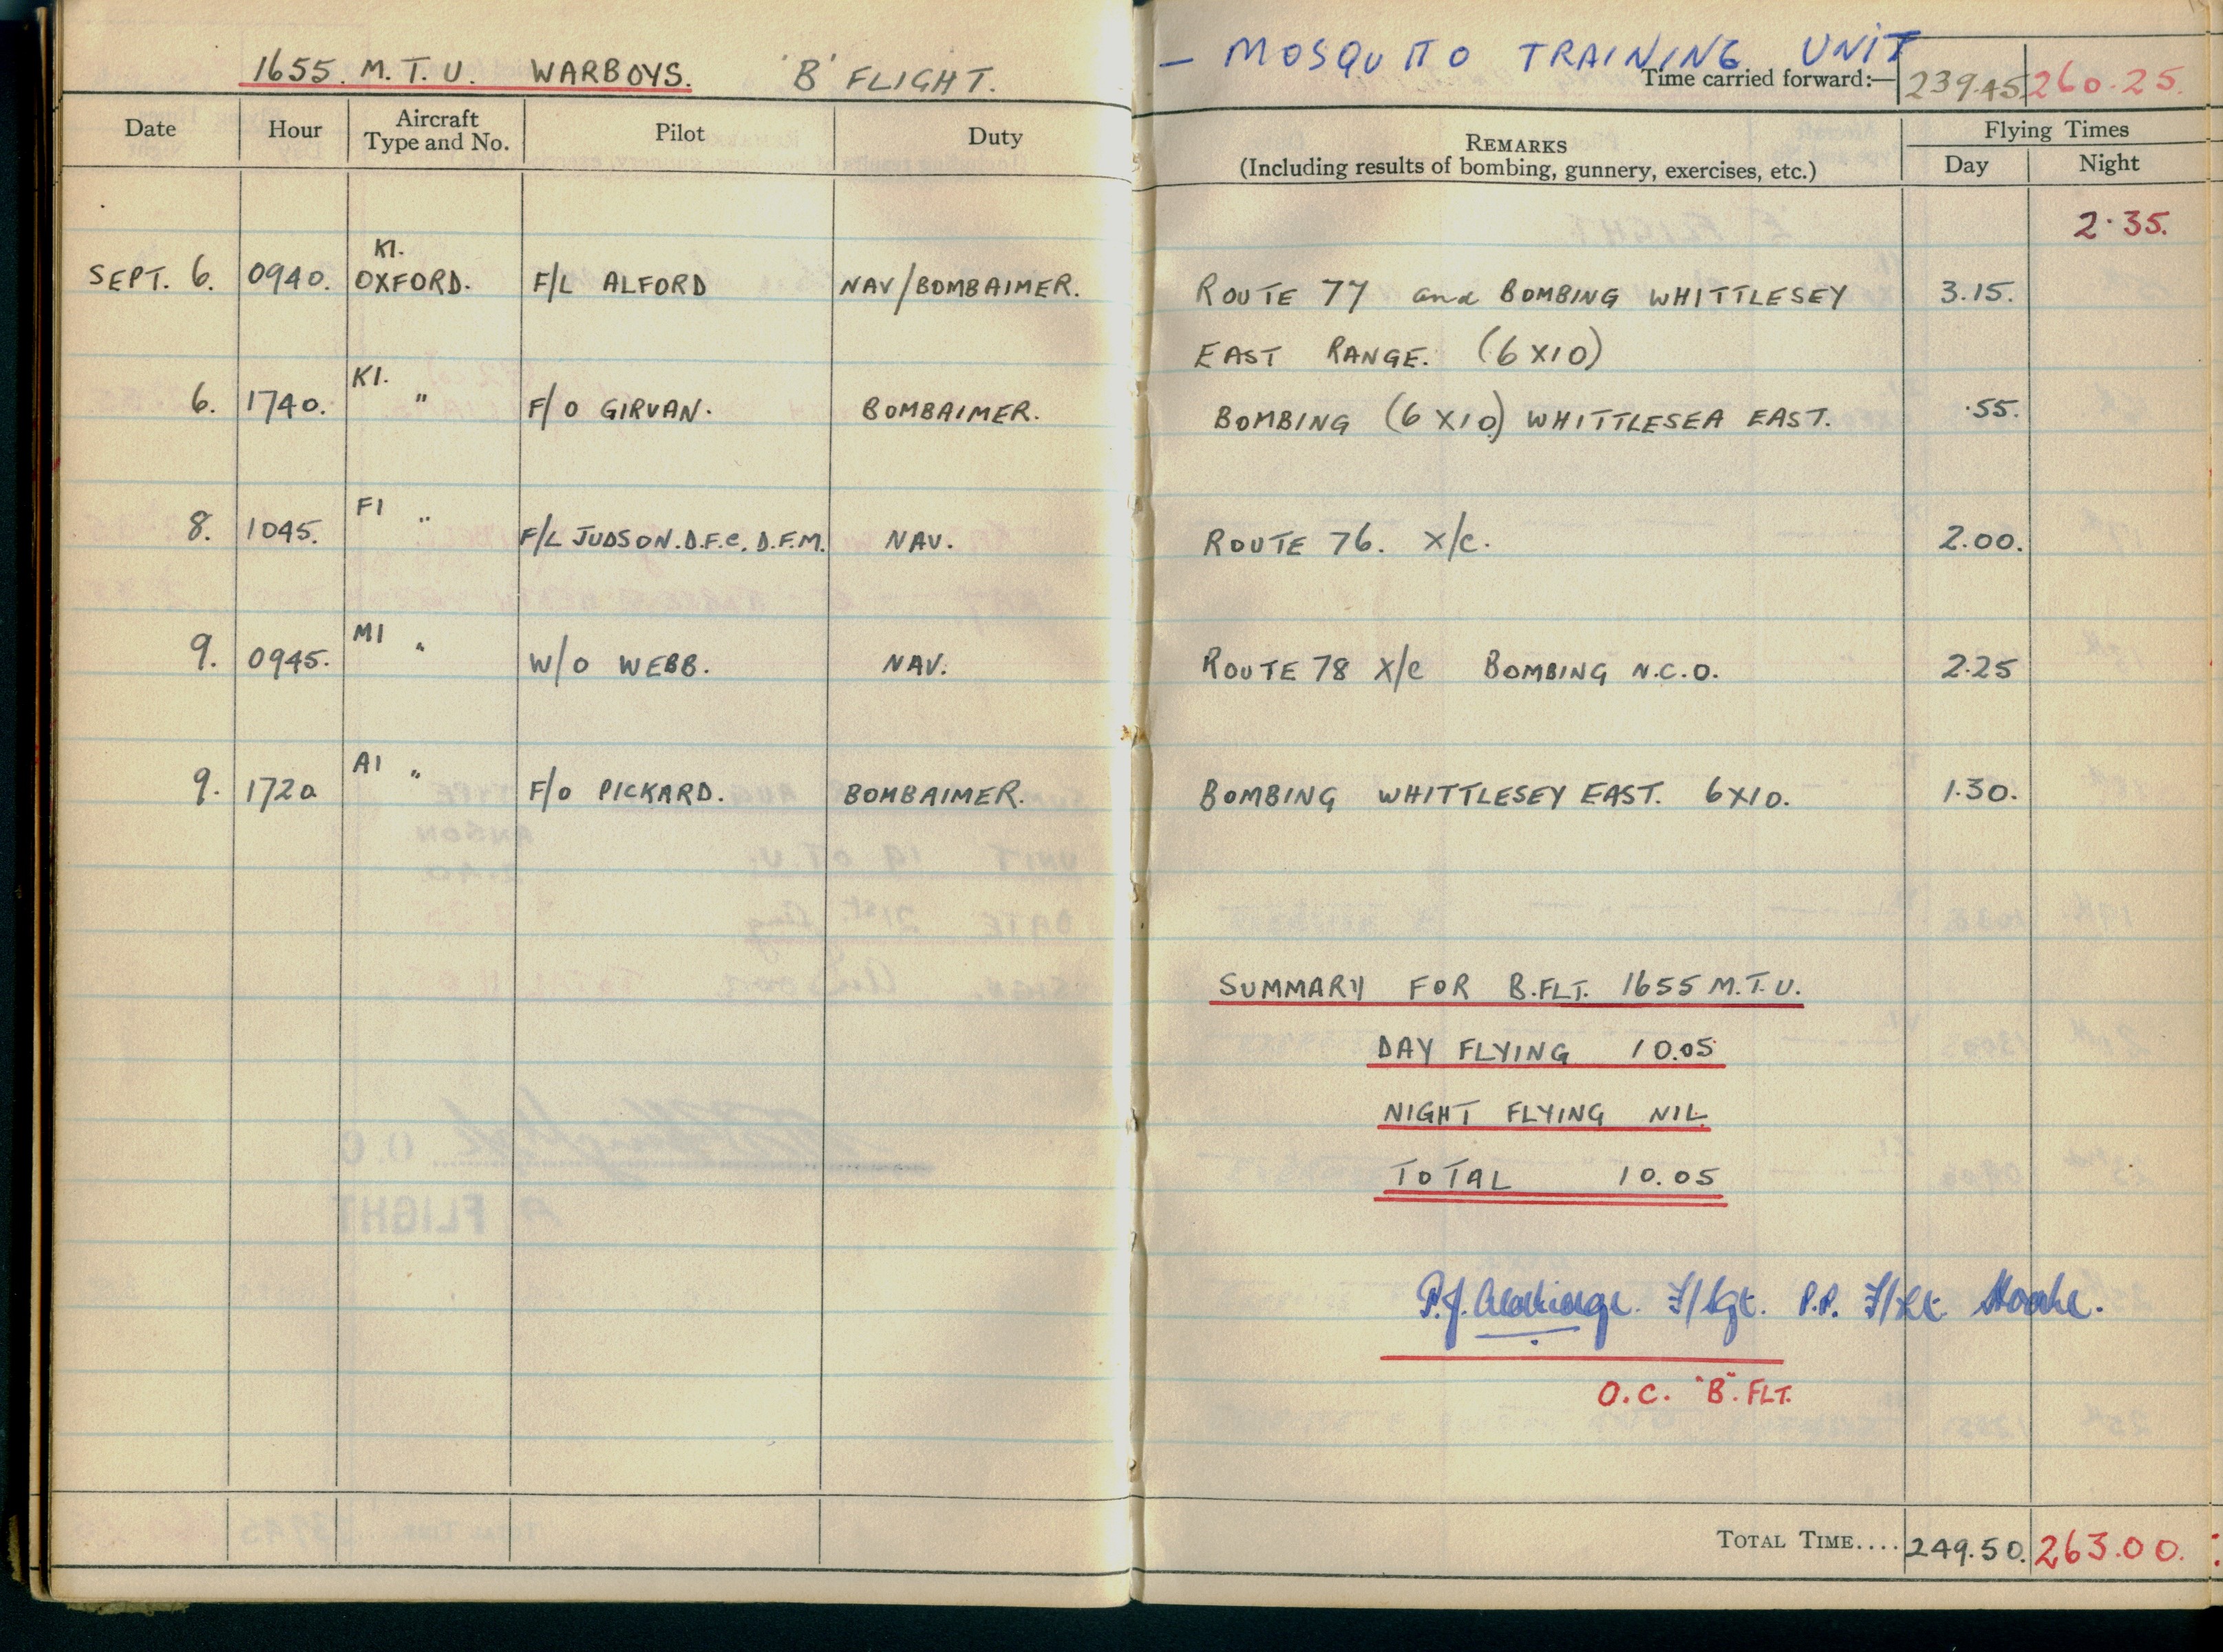 1655. M.T.U. WARBOYS. 'B' FLIGHT.
Date Hour Aircraft Type and No. Pilot Duty
K1.
SEPT. 6. 0940. OXFORD. F/L ALFORD NAV/BOMBAIMER.
K1.
6. 1740. " F/O GIRVAN. BOMBAIMER.
F1
8. 1045. " F/L JUDSON. D.F.C. D.F.M. NAV.
M1
9. 0945. " W/O WEBB. NAV.
A1
9. 1720 " F/O PICKARD. BOMBAIMER.
– MOSQUITO TRAINING UNIT
Time carried forward:— 239.45 260.25.
REMARKS
(Including results of bombing, gunnery, exercises, etc.)
Flying Times
Day Night
2.35.
ROUTE 77 and BOMBING WHITTLESEY 3.15.
EAST RANGE. (6X10)
BOMBING (6X10) WHITTLESEA EAST. .55.
ROUTE 76. X/C. 2.00.
ROUTE 78 X/C BOMBING N.C.O. 2.25
BOMBING WHITTLESEY EAST. 6X10. 1.30.
SUMMARY FOR B.FLT. 1655 M.T.U.
DAY FLYING 10.05
NIGHT FLYING NIL.
TOTAL 10.05
P.J. F/Sgt. P.P. F/Lt.
O.C. "B". FLT.
TOTAL TIME.... 249.50. 263.00.